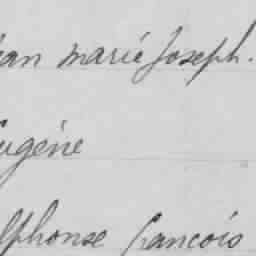 ean marie Joseph.
Eugène
lphonse francois